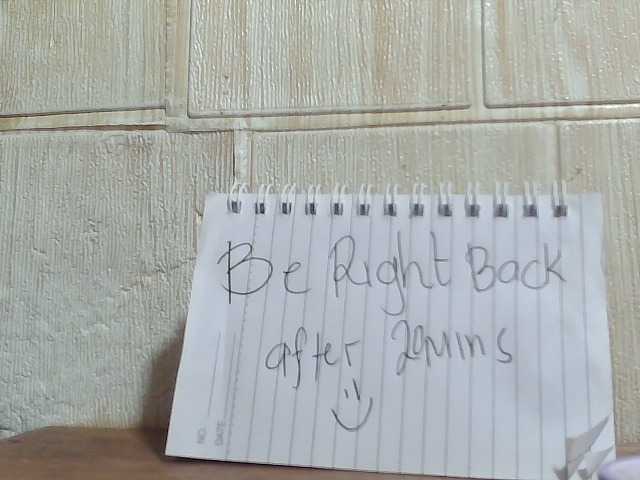 Be Right Back
after 20Mins
:)
NO.
DATE